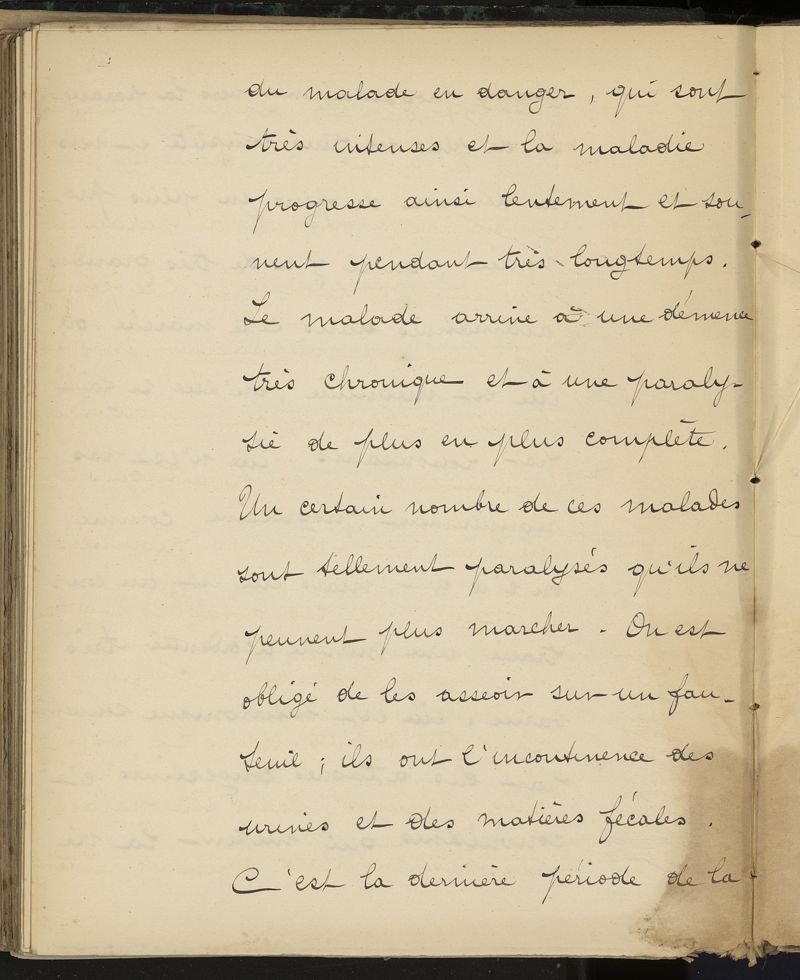 du malade en danger, qui sont
très intenses et la maladie
progresse ainsi lentement et sou-
vent pendant très longtemps.
Le malade arrive à une démence
très chronique et à une paraly-
sie de plus en plus complète.
Un certain nombre de ces malades
sont tellement paralysés qu'ils ne
peuvent plus marcher. On est
obligé de les asseoir sur un fau-
teuil ; ils ont l'incontinence des
urines et des matières fécales.
C'est la dernière période de la